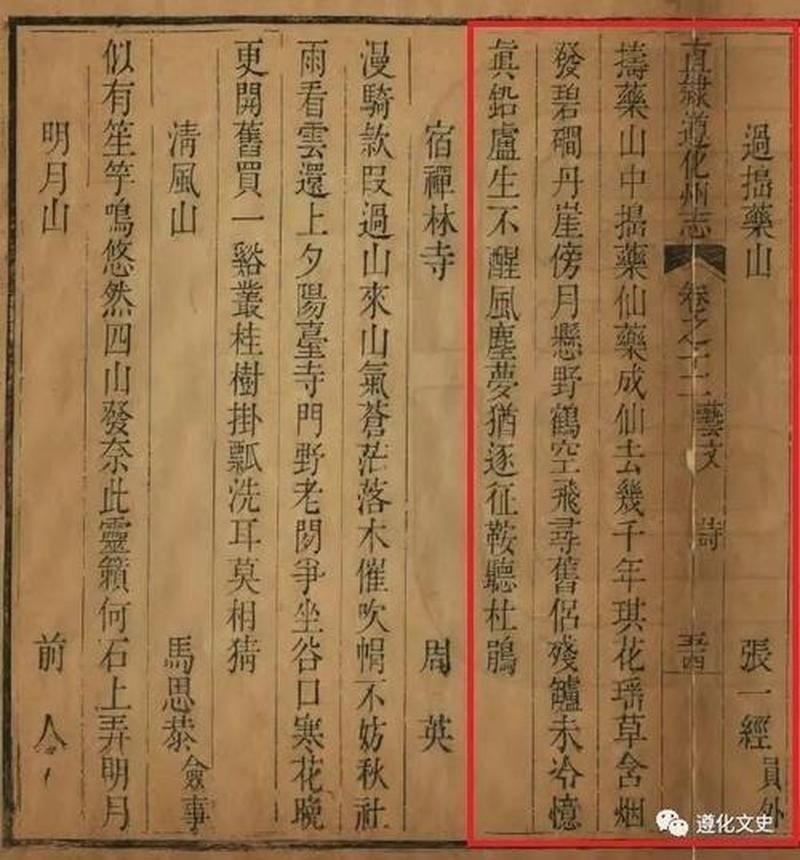 過搗藥山 張一經 員外
直隸遵化州志 卷之十二 藝文 詩 五四
擣藥山中搗藥仙藥成仙去幾千年琪花瑶草含烟
發碧磵丹崖傍月懸野鶴空飛尋舊侶殘罏未冷憶
眞鉛盧生不醒風塵夢猶逐征鞍聽杜鵑
宿禪林寺 周英
漫騎款段過山來山氣蒼茫落木催吹帽不妨秋社
雨看雲還上夕陽臺寺門野老閒爭坐谷口寒花晚
更開舊買一谿叢桂樹掛瓢洗耳莫相猜
淸風山 馬思恭 僉事
似有笙竽鳴悠然四山發奈此靈籟何石上弄明月
明月山 前人
遵化文史